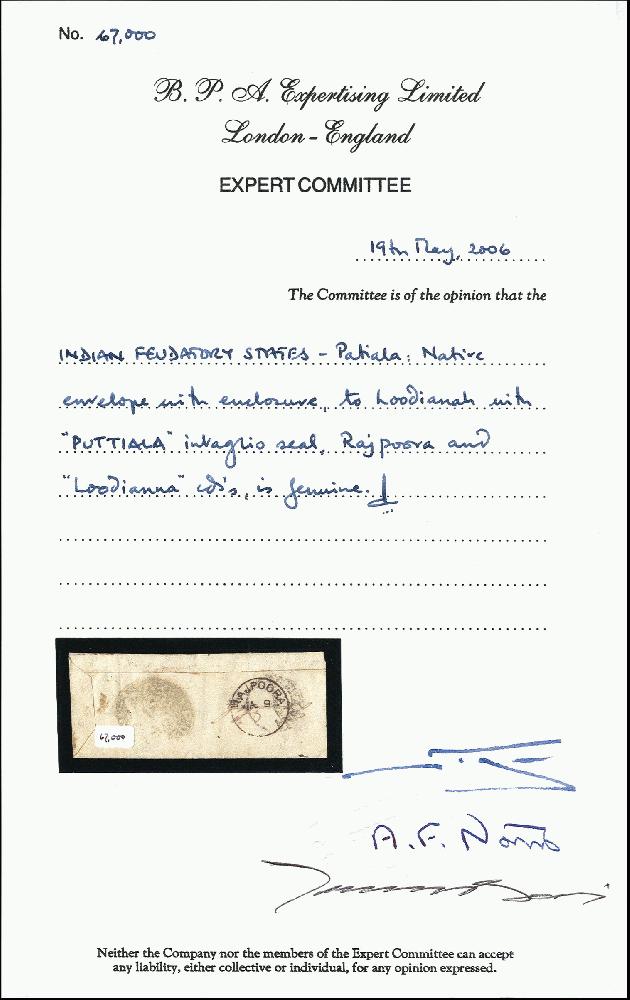 No. 67,000
B. P. A. Expertising Limited
London - England
EXPERT COMMITTEE
19th May, 2006
The Committee is of the opinion that the
INDIAN FEUDATORY STATES - Patiala; Native
envelope with enclosure, to Loodianah with
"PUTTIALA" intaglio seal, Rajpoora and
"Loodianna" cds's, is genuine.
RAJPOORA
67,000
A. F. Norris
Neither the Company nor the members of the Expert Committee can accept
any liability, either collective or individual, for any opinion expressed.